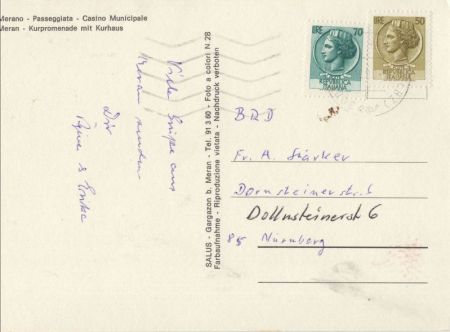 Merano - Passeggiata - Casino Municipale
Meran - Kurpromenade mit Kurhaus
Viele Grüße aus
Meran senden
Dir
& Erika
SALUS - Gargazon b. Meran - Tel. 91 3 60 - Foto a colori N. 28
Farbaufnahme - Riproduzione vietata - Nachdruck verboten
LIRE 70
REPUBBLICA
ITALIANA
LIRE 50
REPUBBLICA
ITALIANA
BRD
Fr. A. Stärker
Dornsteinerstr. 6
Dollnsteinerstr 6
85 Nürnberg